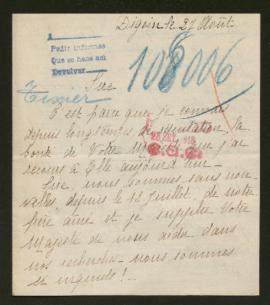 Digoin le 27 Août
A
Pedir informes
Que se hace así
Devolver
108006
Tissier
Sire
C'est parce que je connais
depuis longtemps de réputation la
bonté de Votre Majesté que j'ai
recours à Elle aujourd'hui
Sire, nous sommes sans nou-
velles, depuis le 12 Juillet, de notre
père aimé et je supplie Votre
Majesté de nous aider dans
nos recherches. nous sommes
si inquiets! -